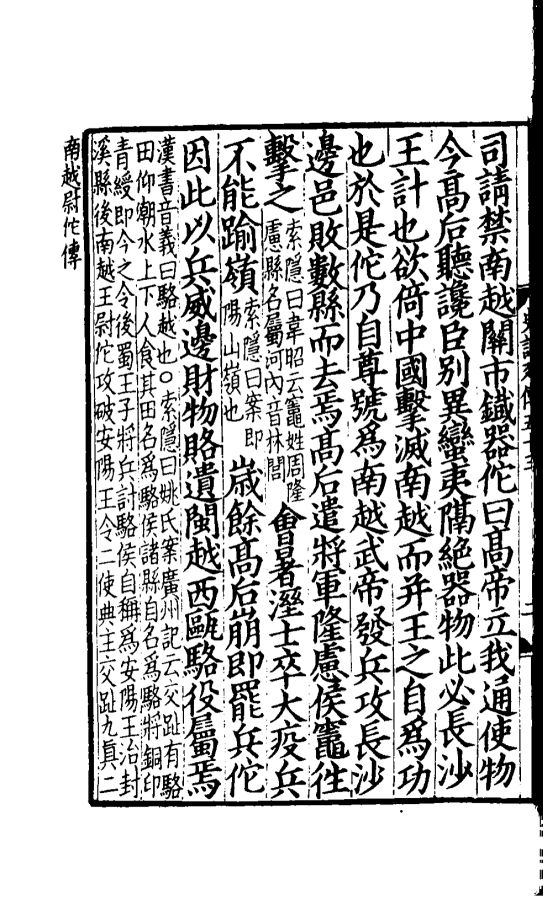 司請禁南越關市鐵器佗曰髙帝立我通使物
今髙后聽讒臣别異蠻夷隔絶器物此必長沙
王計也欲倚中國擊滅南越而并王之自爲功
也於是佗乃自尊號爲南越武帝發兵攻長沙
邊邑敗數縣而去焉髙后遣將軍隆慮侯竈往
擊之索隱曰韋昭云竈姓周隆慮縣名屬河內音林閭會暑溼士卒大疫兵
不能踰嶺索隱曰案即陽山嶺也歳餘髙后崩即罷兵佗
因此以兵威邊財物賂遺閩越西甌駱役屬焉
漢書音義曰駱越也○索隱曰姚氏案廣州記云交趾有駱
田仰潮水上下人食其田名爲駱侯諸縣自名爲駱將銅印
青綬即今之令後蜀王子將兵討駱侯自稱爲安陽王治封
溪縣後南越王尉佗攻破安陽王令二使典主交趾九真二
南越尉佗傳